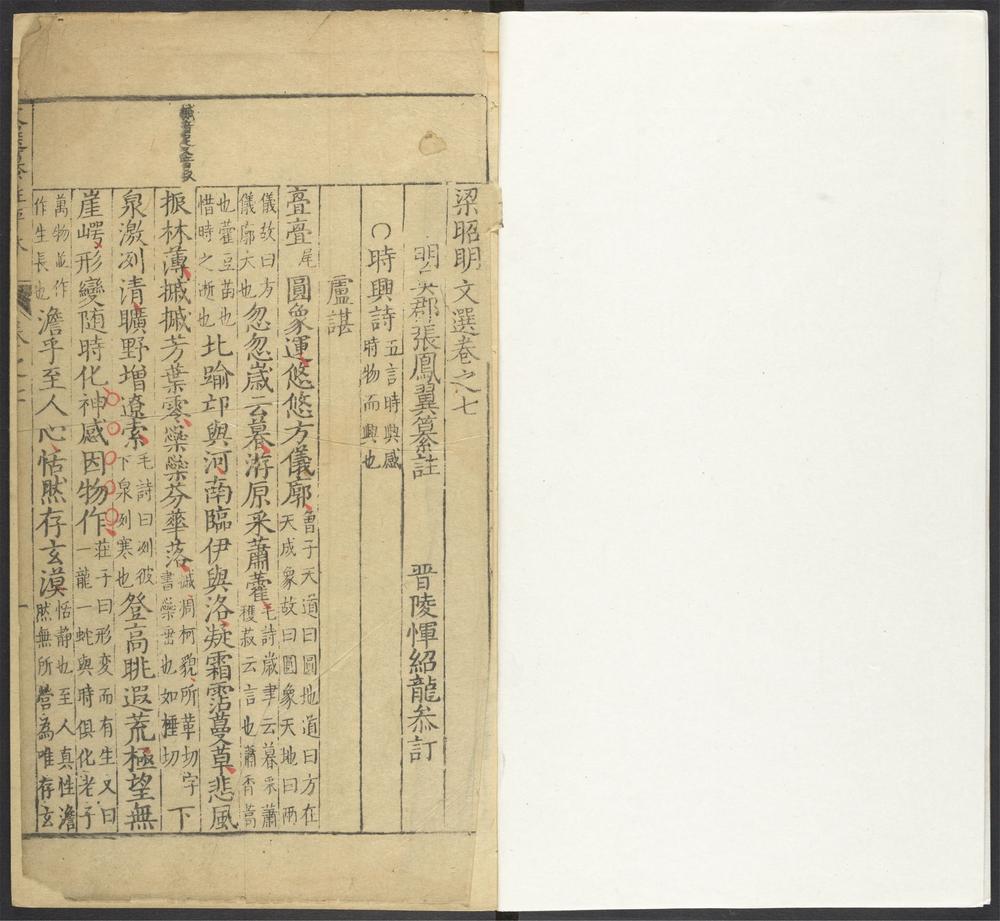 梁昭明文選卷之七
明吳郡張鳳翼纂註　晋陵惲紹龍叅訂
○時興詩五言時興感時物而興也
盧諶
亹亹尾圓象運悠悠方儀廓曾子天道曰圓地道曰方在天成象故曰圓象天地曰兩
儀故曰方儀廓大也忽忽歲云暮游原采蕭藿毛詩歲聿云暮采蕭穫菽云言也蕭香蒿
也藿豆苗也惜時之逝也北踰邙與河南臨伊與洛凝霜霑蔓草悲風
振林薄摵摵芳葉零橤橤芬華落摵凋柯貌所革切字書橤垂也如棰切下
泉激冽清曠野增遼索毛詩曰冽彼下泉冽寒也登高眺遐荒極望無
崖崿形變随時化神感因物作莊子曰形変而有生又曰一龍一蛇與時俱化老子
萬物並作作生長也澹乎至人心恬然存玄漠恬静也至人真性澹然無所營為唯存玄